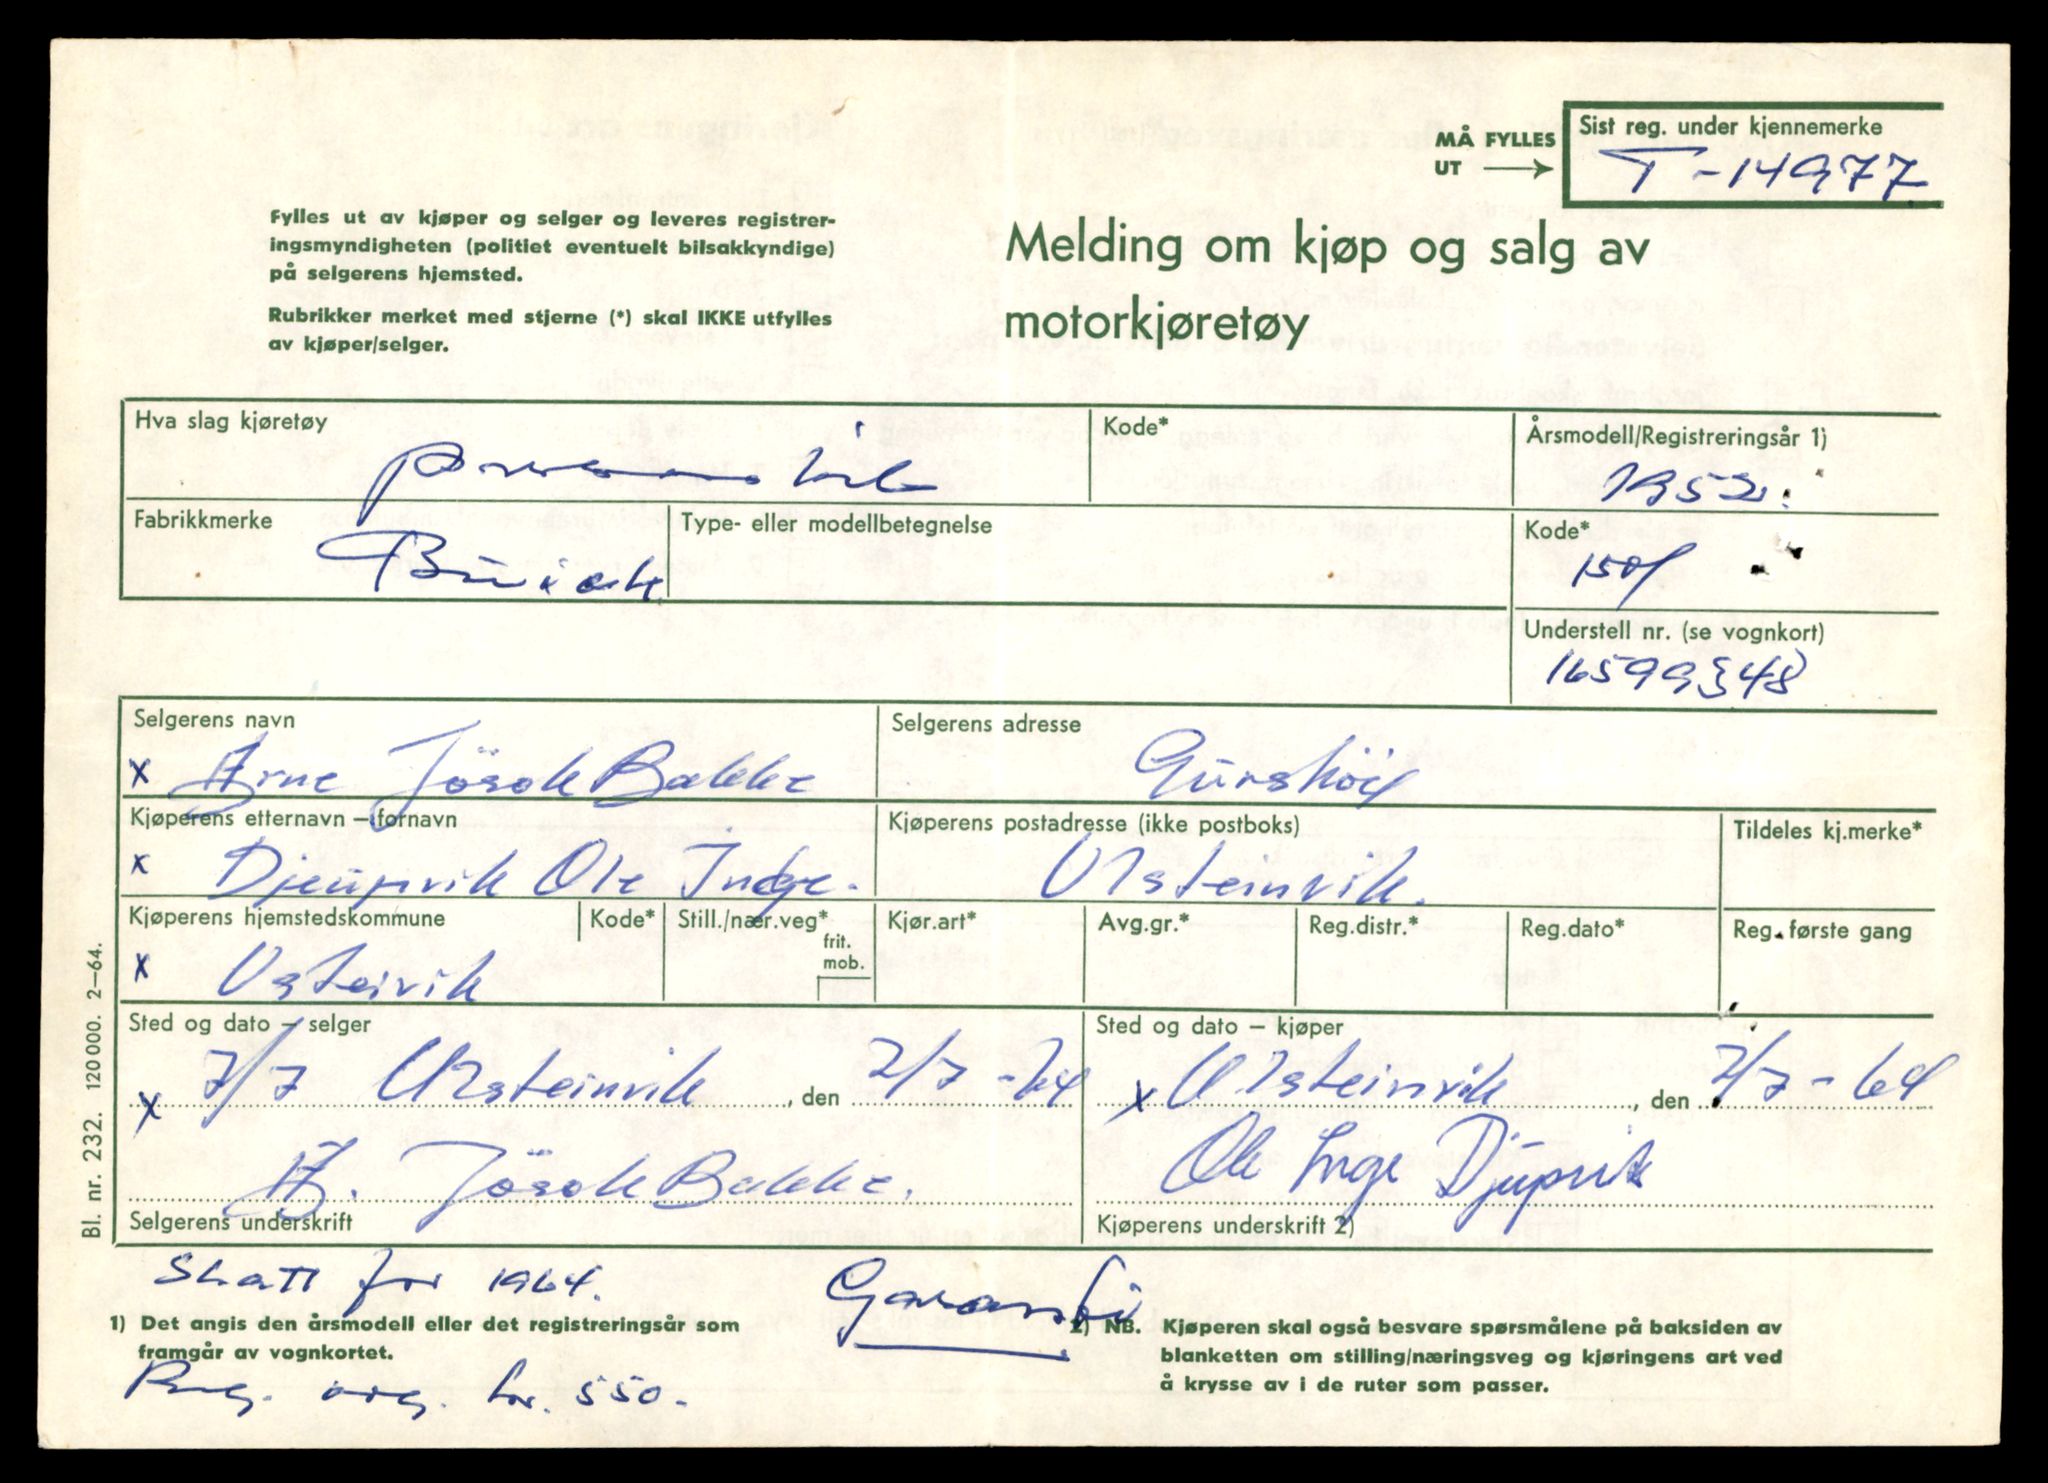 MÅ FYLLES
UT
Sist reg. under kjennemerke
T-14977
Fylles ut av kjøper og selger og leveres registrer-
ingsmyndigheten (politiet eventuelt bilsakkyndige)
på selgerens hjemsted.
Rubrikker merket med stjerne (*) skal IKKE utfylles
av kjøper/selger.
Melding om kjøp og salg av
motorkjøretøy
Hva slag kjøretøy
personbil
Kode*
Årsmodell/Registreringsår 1)
1952.
Fabrikkmerke
Buick
Type- eller modellbetegnelse
Kode*
Understell nr. (se vognkort)
16599348
Selgerens navn
x Arne Jösok Bakke
Selgerens adresse
Gurskög
Kjøperens etternavn – fornavn
x Djeupvik Ole Inge.
Kjøperens postadresse (ikke postboks)
Ulsteinvik.
Tildeles kj.merke*
Kjøperens hjemstedskommune
x Usteivik
Kode*
Still./nær.veg*
frit.
mob.
Kjør.art*
Avg.gr.*
Reg.distr.*
Reg.dato*
Reg. første gang
Sted og dato – selger
x 7/7 Ulsteinvik, den 2/7 -64
A. Jösok Bakke.
Selgerens underskrift
Sted og dato – kjøper
x Ulsteinvik, den 2/7-64
Ole Inge Djupvik
Kjøperens underskrift 2)
Bl. nr. 232. 120 000. 2–64.
Skatt for 1964.
Garanti
1) Det angis den årsmodell eller det registreringsår som
framgår av vognkortet.
Reg. avg. kr. 550.-
2) NB. Kjøperen skal også besvare spørsmålene på baksiden av
blanketten om stilling/næringsveg og kjøringens art ved
å krysse av i de ruter som passer.